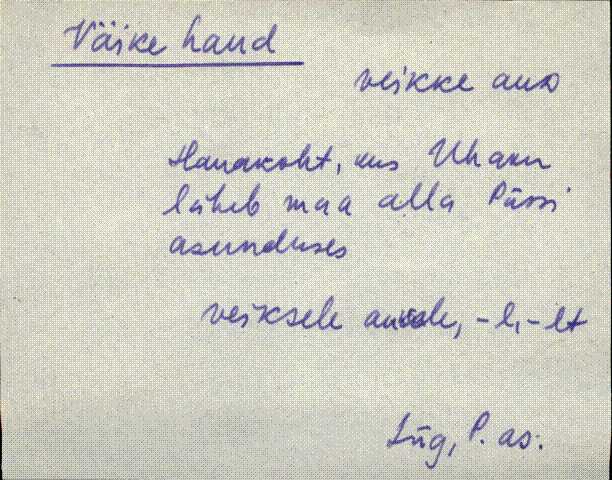 Väike haud
veikke auD
Hauakoht, kus Uhaku
läheb maa alla Püssi
asunduses
veiksele -l, -lt
Lüg, P. as.